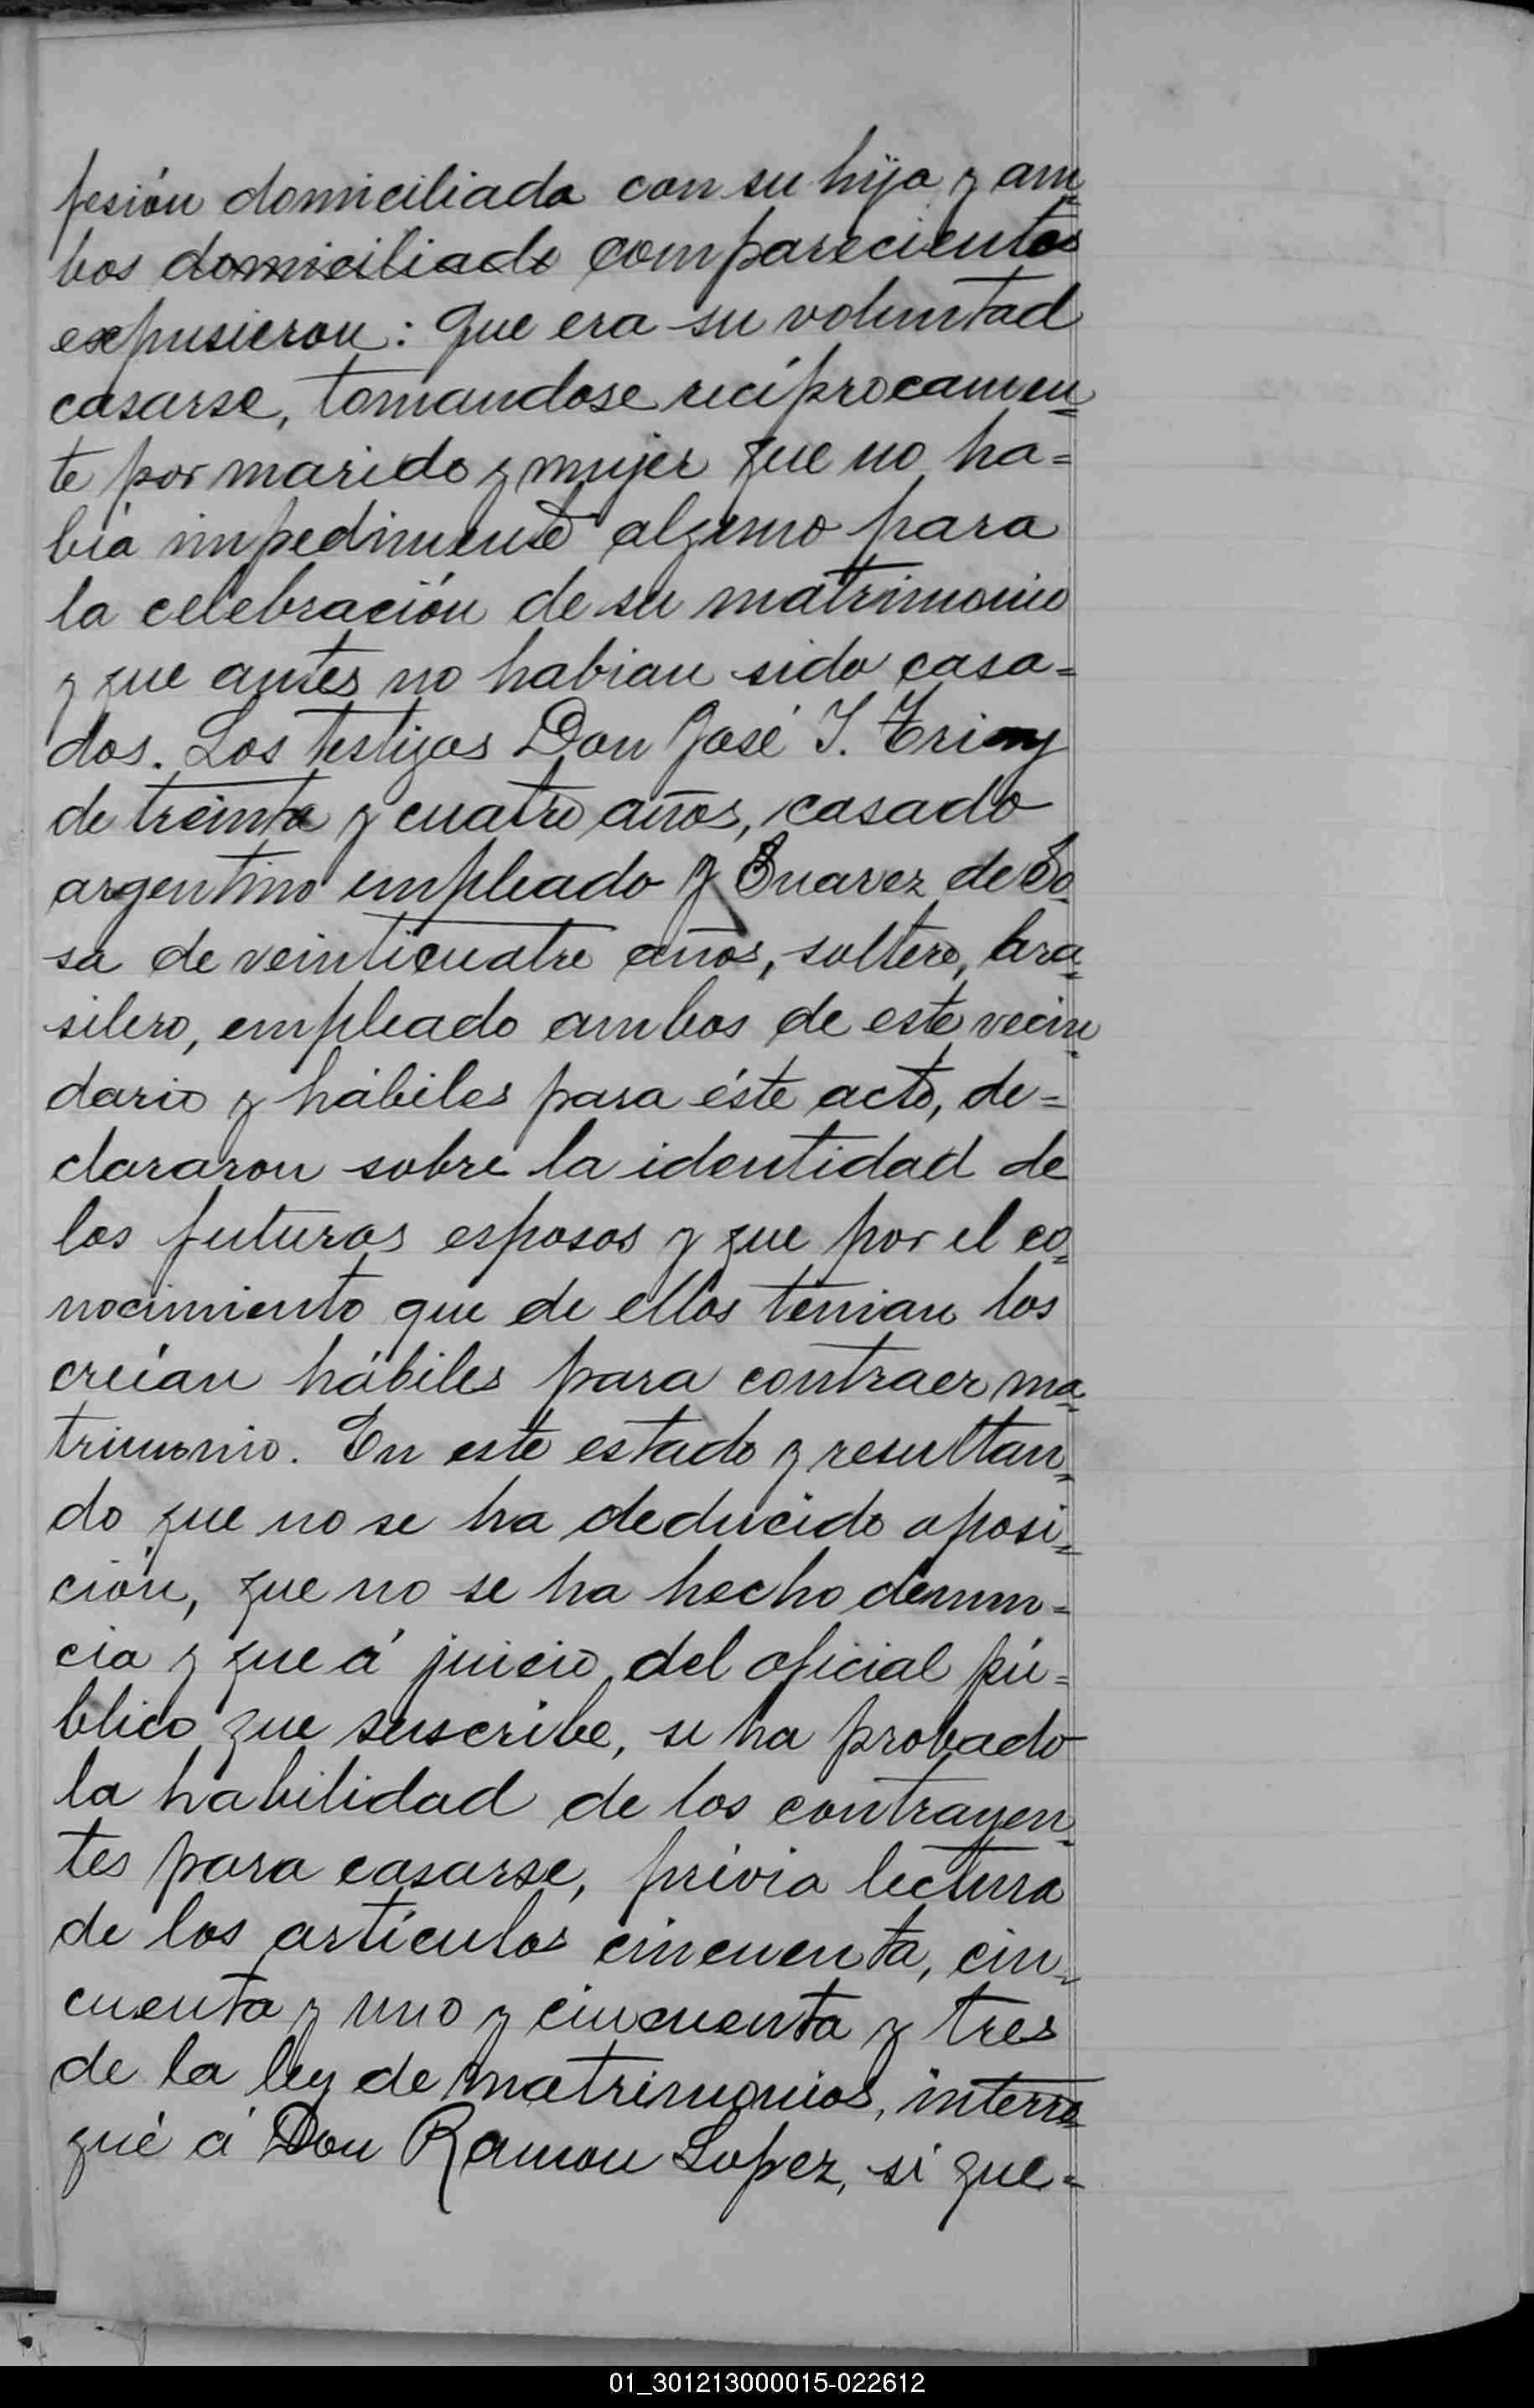 fesión domiciliada con su hija y am=
bos domiciliado comparecientes
expusieron: que era su voluntad
casarse, tomandose recíprocamen=
te por marido y mujer que no ha=
bía impedimento alguno para
la celebración de su matrimonio
y que antes no habian sido casa=
dos. Los testigos Don José I.
de treinta y cuatro años, casado
argentino empleado y Suarez de So=
sa de veinticuatro años, soltero, bra=
silero, empleado ambos de este vecin=
dario y hábiles para éste acto, de=
clararon sobre la identidad de
los futuros esposos y que por el co=
nocimiento que de ellos tenian los
creían hábiles para contraer ma=
trimonio. En este estado y resultan=
do que no se ha deducido oposi=
ción, que no se ha hecho denun=
cia y que á juicio del oficial pú=
blico que suscribe, se ha probado
la habilidad de los contrayen=
tes para casarse, prévia lectura
de los artículos cincuenta, cin=
cuenta y uno y cincuenta y tres
de la ley de matrimonios, interro=
gué á Don Ramon Lopez, si que=
01_301213000015-022612